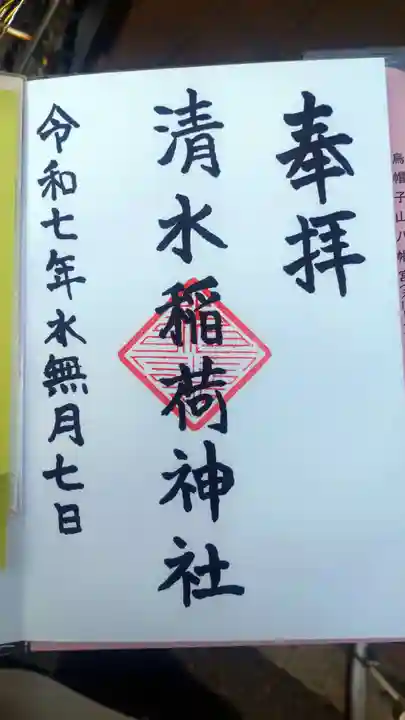 奉拝
清水稲荷神社
令和七年水無月七日
烏帽子山八幡宮